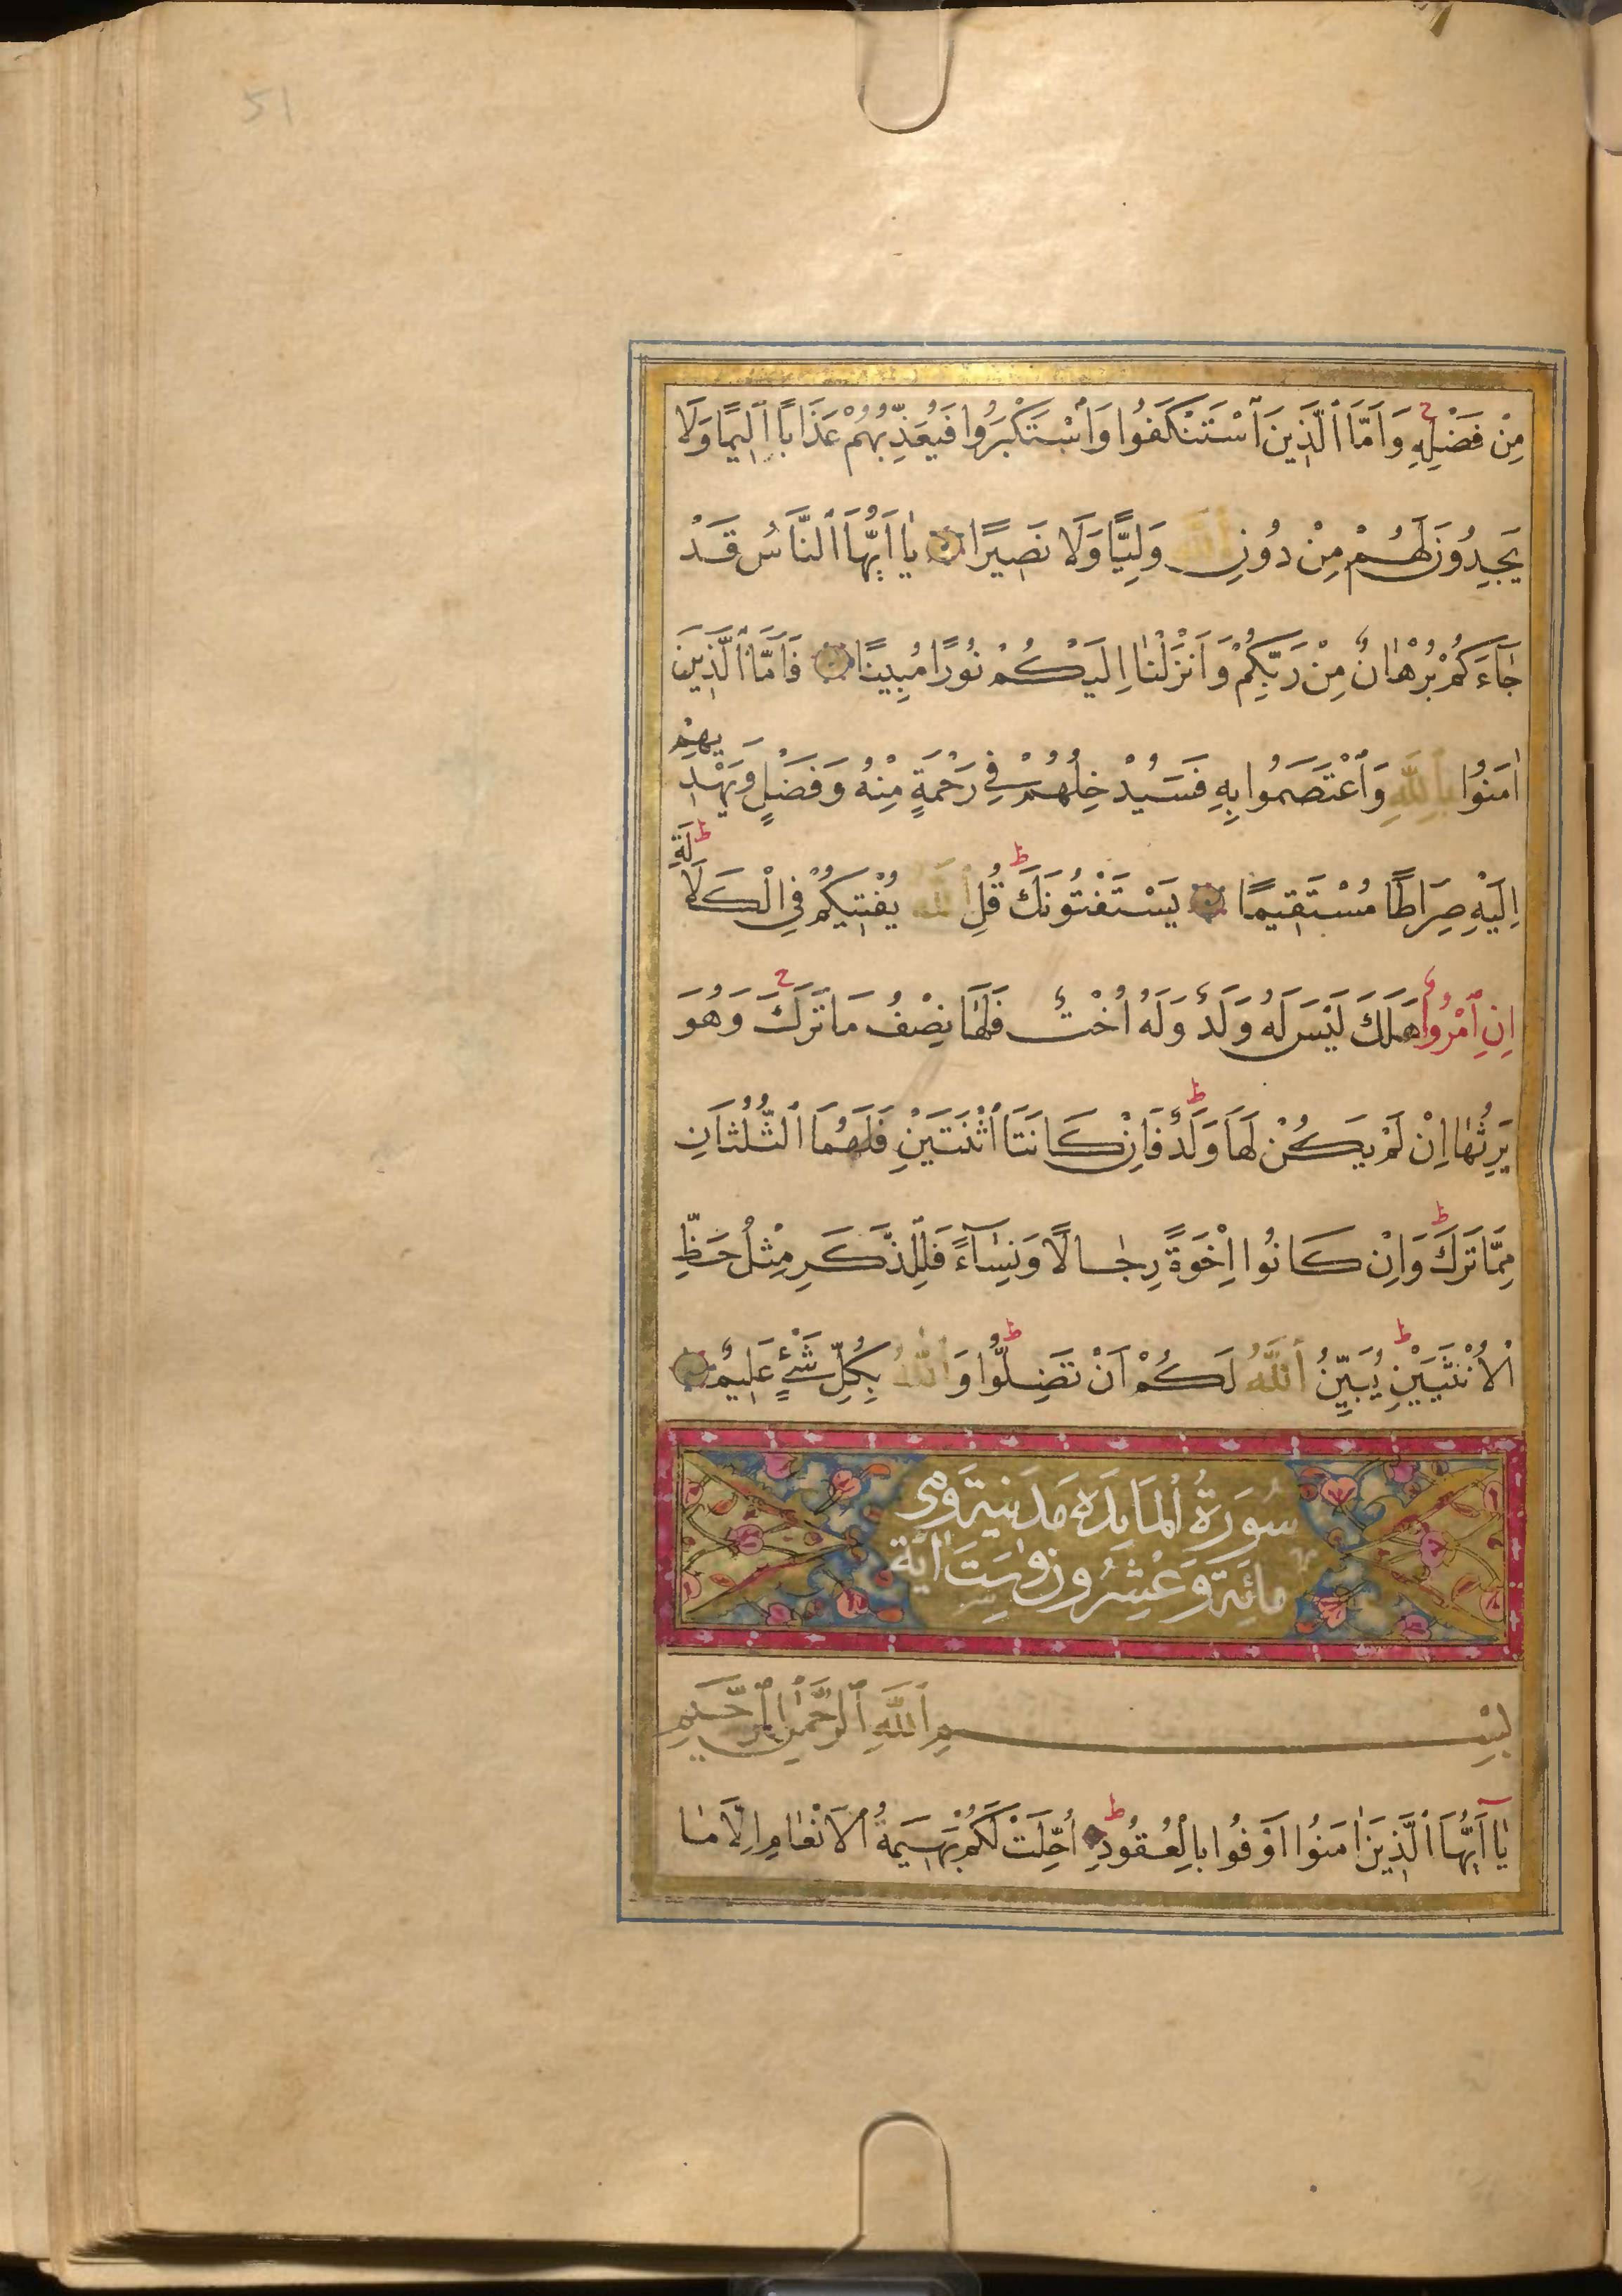 51
مِنْ فَضْلِهِ وَاَمَّا ٱلَّذِينَ ٱسْتَنْكَفُوا وَٱسْتَكْبَرُوا فَيُعَذِّبُهُمْ عَذَابًا اَلِيمًا وَلَا
يَجِدُونَ لَهُمْ مِنْ دُونِ ٱللَّهِ وَلِيًّا وَلَا نَصِيرًا يَا اَيُّهَا ٱلنَّاسُ قَدْ
جَآءَكُمْ بُرْهَانٌ مِنْ رَبِّكُمْ وَاَنْزَلْنَا اِلَيْكُمْ نُورًا مُبِينًا فَاَمَّا ٱلَّذِينَ
اٰمَنُوا بِٱللَّهِ وَٱعْتَصَمُوا بِهِ فَسَيُدْخِلُهُمْ فِي رَحْمَةٍ مِنْهُ وَفَضْلٍ وَيَهْدِيهِمْ
اِلَيْهِ صِرَاطًا مُسْتَقِيمًا يَسْتَفْتُونَكَ قُلِ ٱللَّهُ يُفْتِيكُمْ فِي الْكَلَالَةِ
اِنِ ٱمْرُؤٌا هَلَكَ لَيْسَ لَهُ وَلَدٌ وَلَهُ اُخْتٌ فَلَهَا نِصْفُ مَا تَرَكَ وَهُوَ
يَرِثُهَا اِنْ لَمْ يَكُنْ لَهَا وَلَدٌ فَاِنْ كَانَتَا ٱثْنَتَيْنِ فَلَهُمَا ٱلثُّلُثَانِ
مِمَّا تَرَكَ وَاِنْ كَانُوا اِخْوَةً رِجَالًا وَنِسَآءً فَلِلذَّكَرِ مِثْلُ حَظِّ
ٱلْاُنْثَيَيْنِ يُبَيِّنُ ٱللَّهُ لَكُمْ اَنْ تَضِلُّوا وَٱللَّهُ بِكُلِّ شَىْءٍ عَلِيمٌ
سُورَةُ ٱلْمَايدَه مَدَنِيَة وَهِى
مائَة وَعَشِرُونَ وَسِتَ اٰيَة
بِسْمِ ٱللَّهِ ٱلرَّحْمٰنِ ٱلرَّحِيمِ
يَآ اَيُّهَا ٱلَّذِينَ اٰمَنُوا اَوْفُوا بِالْعُقُودِ اُحِلَّتْ لَكُمْ بَهِيمَةُ ٱلْاَنْعَامِ اِلَّا مَا